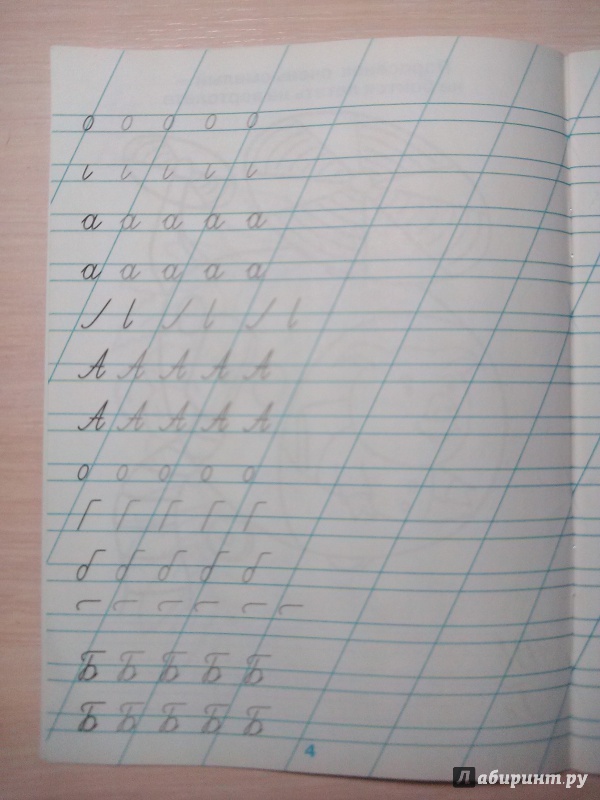 о о о о о
а а а а а
а а а а а
А А А А А
А А А А А
о о о о о
б б б б б
Б Б Б Б Б
Б Б Б Б Б
4
Лабиринт.ру